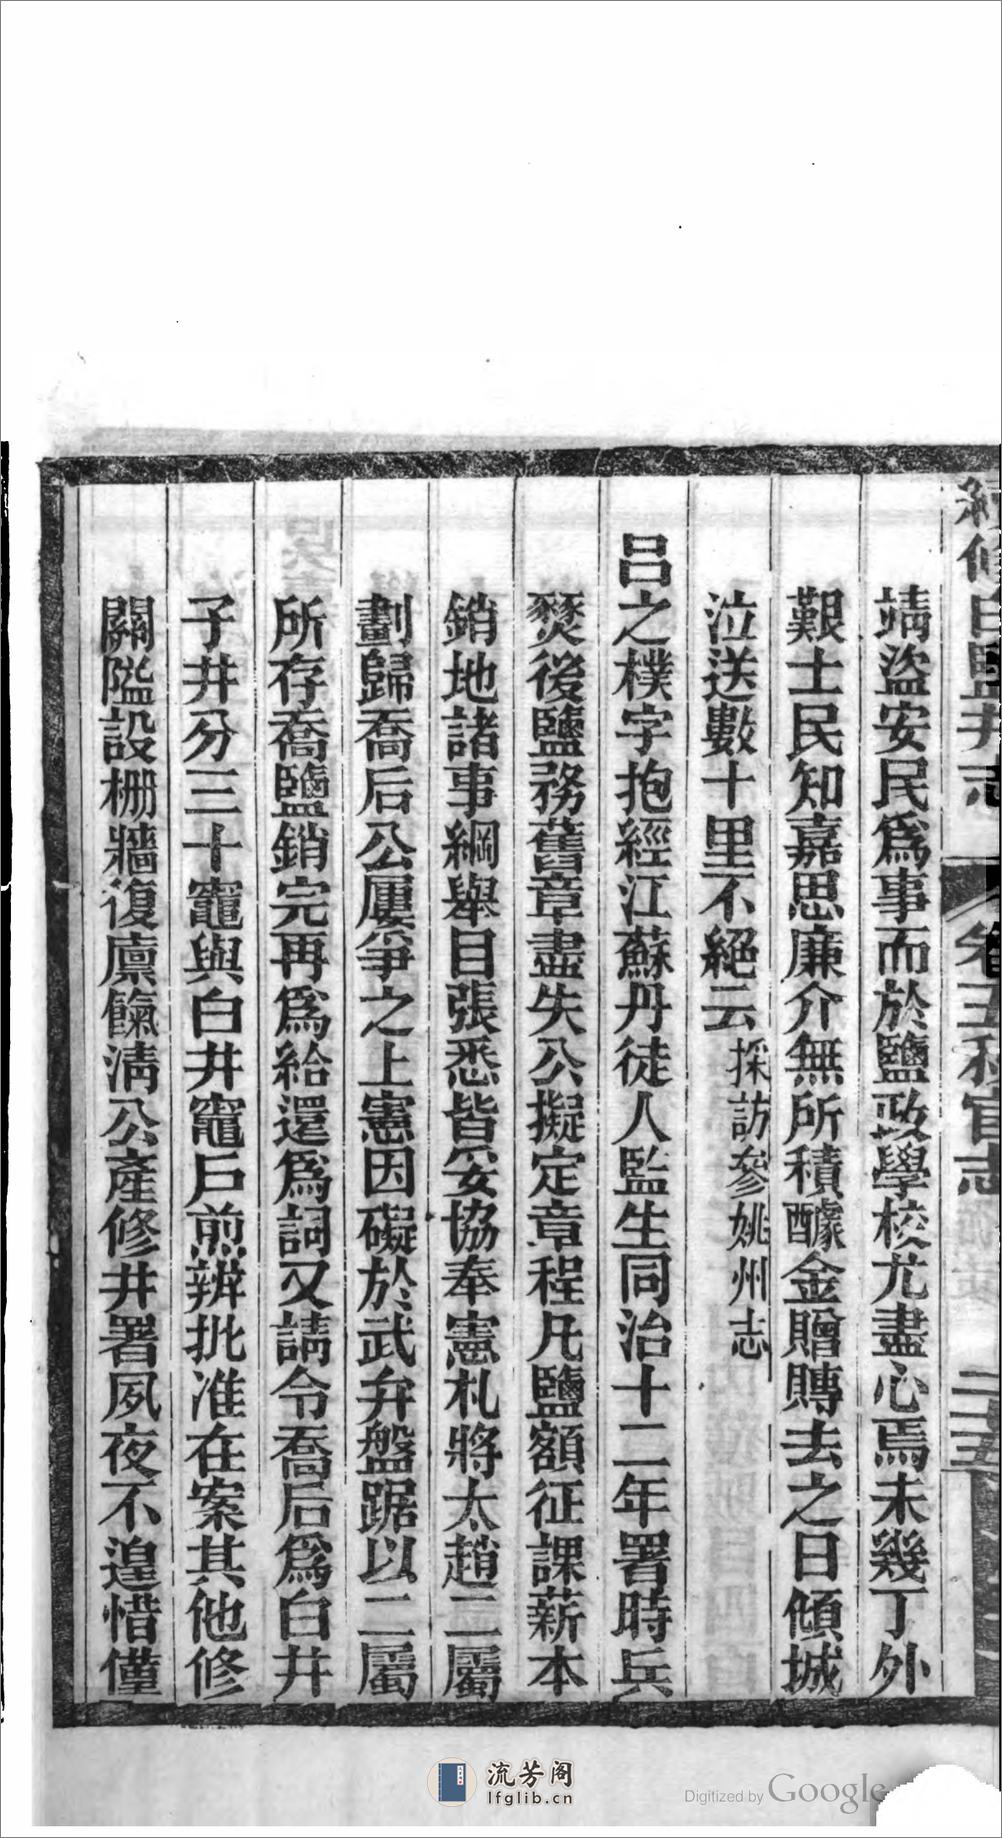 續修白鹽井志
卷五秩官志
二十五
靖盜安民爲事而於鹽政學校尤盡心焉未幾丁外
艱士民知嘉思廉介無所積醵金贈賻去之日傾城
泣送數十里不絕云採訪參姚州志
呂之樸字抱經江蘇丹徒人監生同治十二年署時兵
燹後鹽務舊章盡失公擬定章程凡鹽額征課薪本
銷地諸事綱舉目張悉皆妥協奉憲札將太趙二屬
劃歸喬后公屢爭之上憲因礙於武弁盤踞以二屬
所存喬鹽銷完再爲給還爲詞又請令喬后爲白井
子井分三十竈與白井竈戶煎辨批准在案其他修
關隘設柵牆復廩餼淸公產修井署夙夜不遑惜僅
流芳阁
lfglib.cn
Digitized by Google